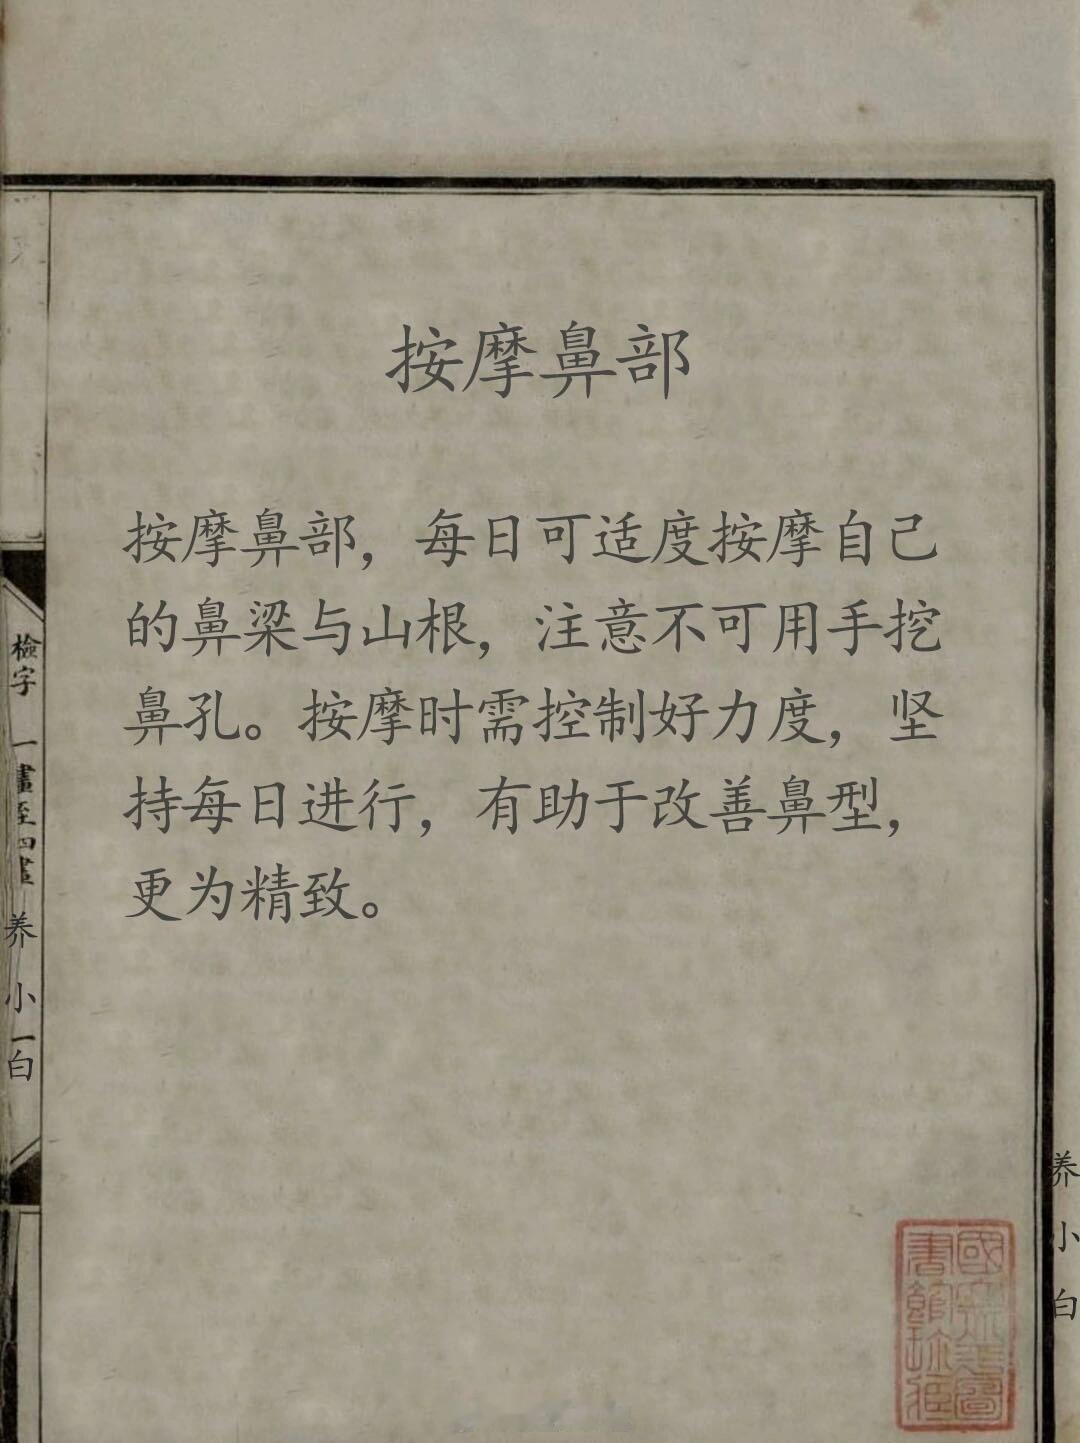 按摩鼻部
按摩鼻部，每日可适度按摩自己
的鼻梁与山根，注意不可用手挖
鼻孔。按摩时需控制好力度，坚
持每日进行，有助于改善鼻型，
更为精致。
檢字
一畫至四畫
养小白
养小白